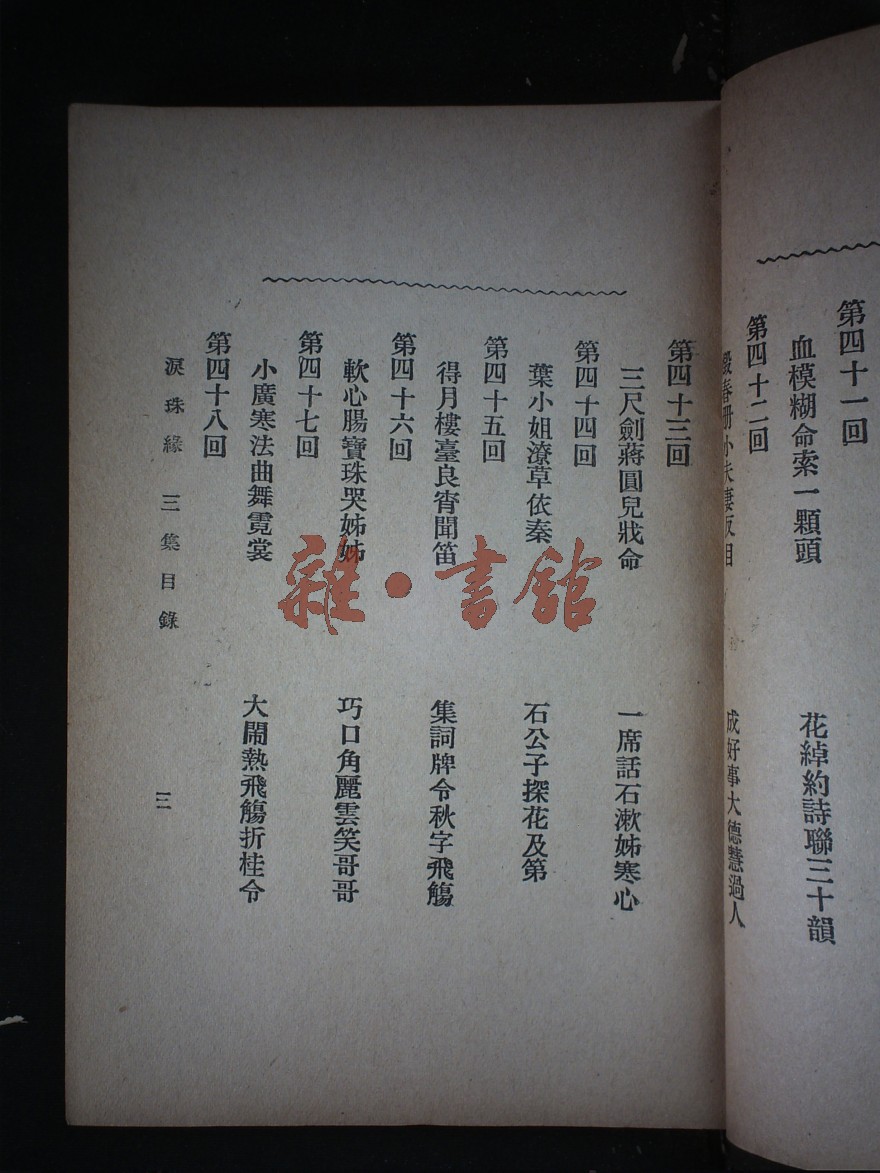 第四十一回
血模糊命索一顆頭 花綽約詩聯三十韻
第四十二回
春册小夫妻反目 成好事大德慧過人
第四十三回
三尺劍蔣圓兒戕命 一席話石漱姊寒心
第四十四回
葉小姐潦草依秦 石公子探花及第
第四十五回
得月樓臺良宵聞笛 集詞牌令秋字飛觴
第四十六回
軟心腸寶珠哭姊姊 巧口角麗雲笑哥哥
第四十七回
小廣寒法曲舞霓裳 大鬧熱飛觴折桂令
第四十八回
淚珠緣 三集目錄 三
雜·書館